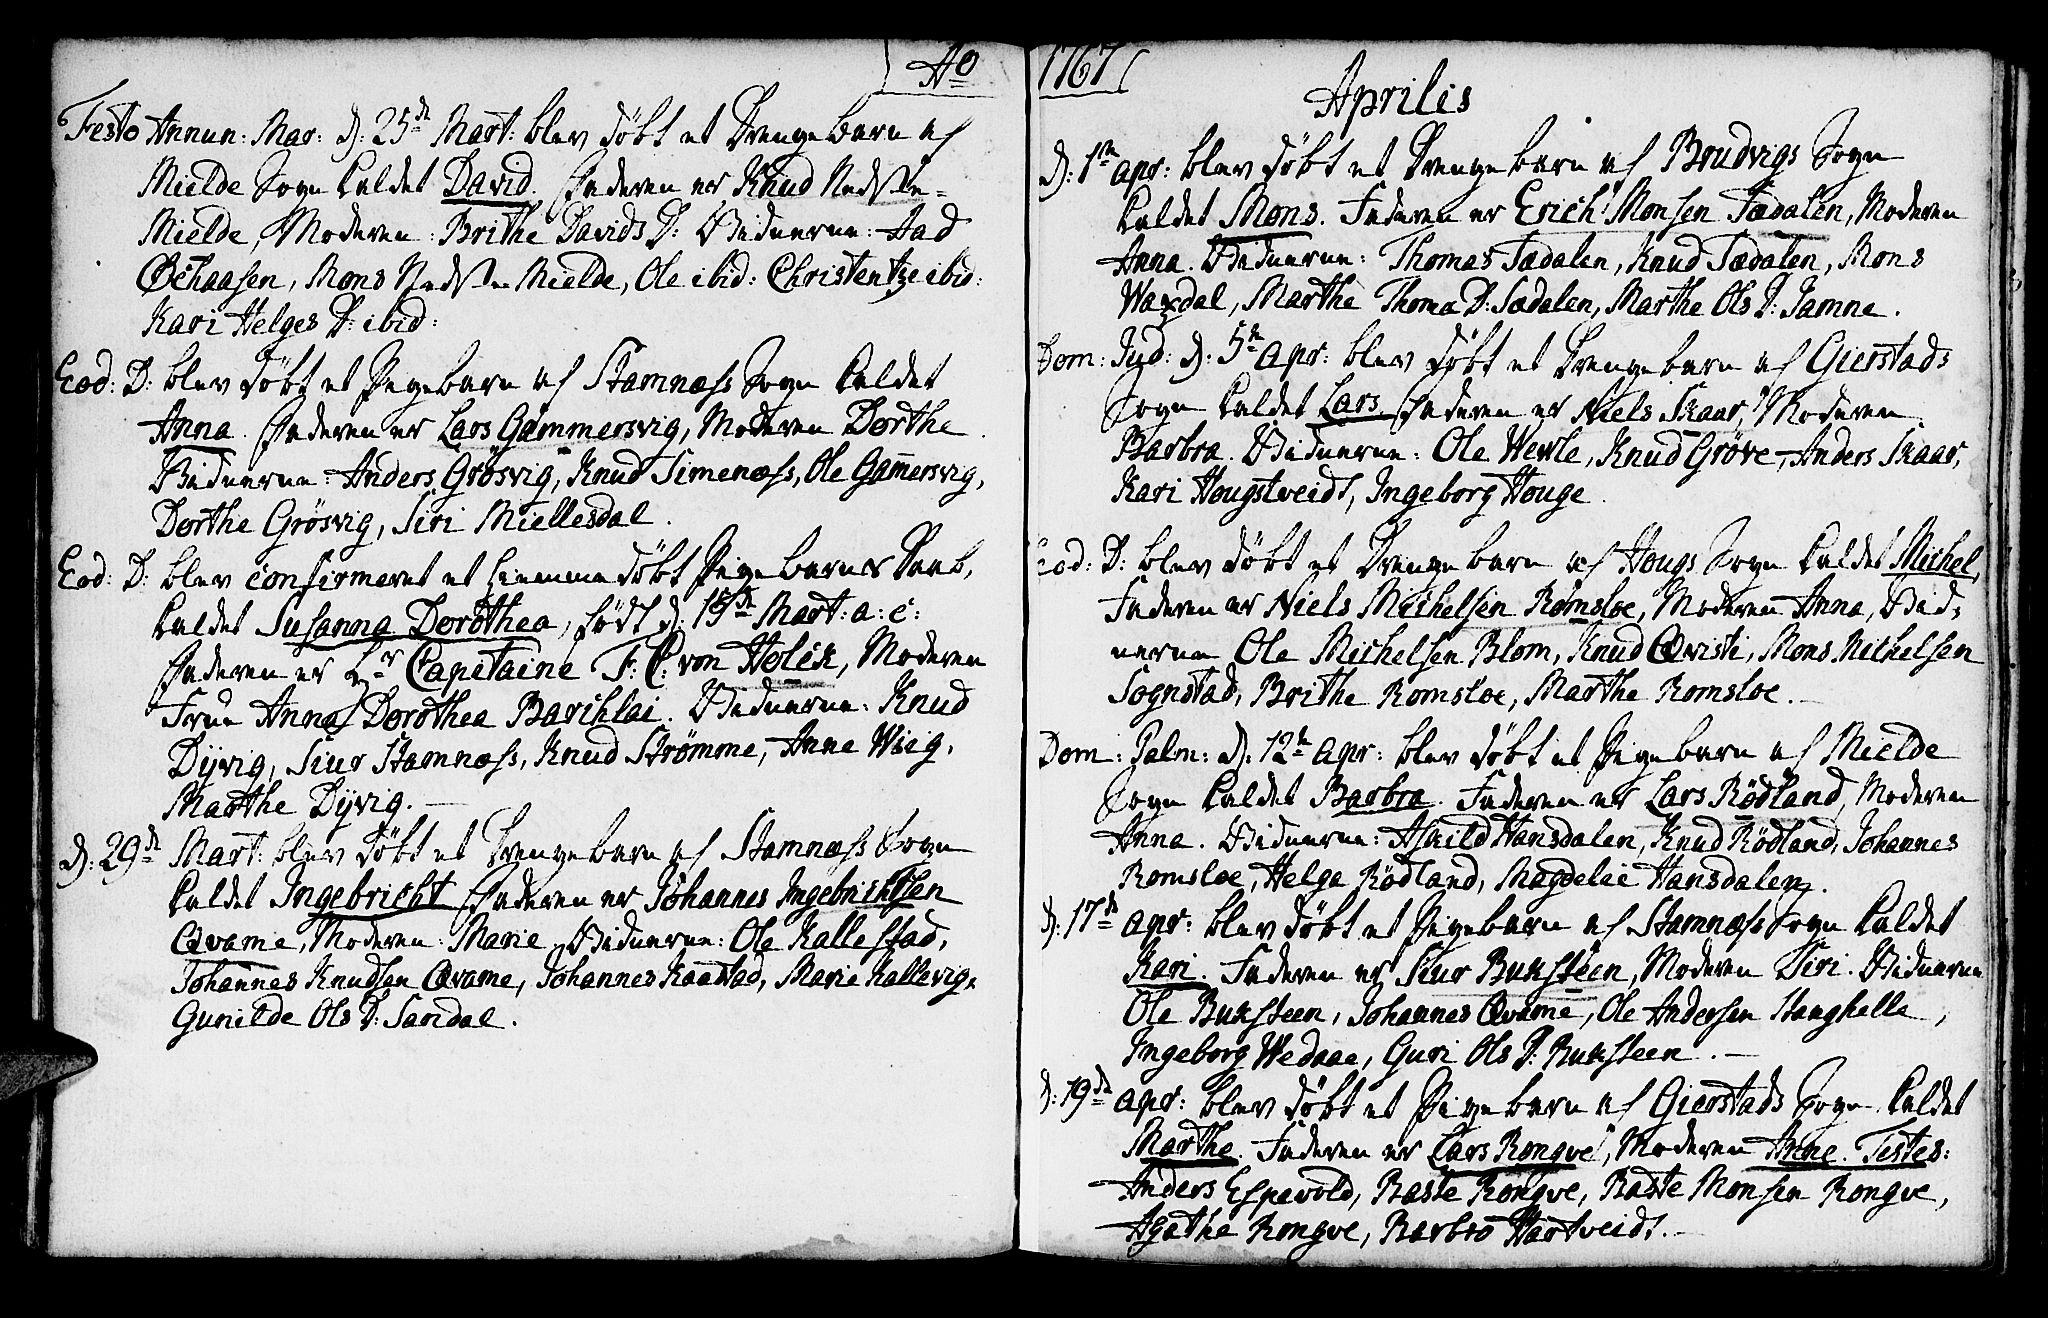 Ao
Festo Annun: Mar: d: 25de Mart: blev døbt et Drengebarn af
Mielde Sogn kaldet David. Faderen er Knud Nedste-
Mielde, Moderen: Brithe Davids D: Vidnerne: Aad
Øehaasen, Mons Nedste Mielde, Ole ibid: Christentze ibid:
Kari Helges D: ibid:
Eod: D: blev døbt et Pigebarn af Stamnæss Sogn kaldet
Anna. Faderen er Lars Gammersvig, Moderen Dorthe
Vidnerne: Anders Grøsvig, Knud Simenæss, Ole Gamersvig,
Dorthe Grøsvig, Siri Miellesdal.
Eod: D: blev confirmeret et hiemmedøbt Pigebarns Daab,
kaldet Susanna Dorothea, født d: 15de Mart: a: c:
Faderen er Hr Capitaine F: C: von Holck, Moderen
Frue Anna Dorothea Barchlai. Vidnerne: Knud
Dyvig, Siur Stamnæss, Knud Strømme, Anne Wiig,
Marthe Dyvig.
d: 29de Mart: blev døbt et Drengebarn af Stamnæss Sogn
kaldet Ingebricht Faderen er Johannes Ingebrichtsen
Qvame, Moderen: Marie. Vidnerne: Ole Kallestad,
Johannes Knudsen Qvame, Johannes Kaastad, Marie Kallevig,
Gunilde Ols D: Sandal.
1767
Aprilis
d: 1te apr: blev døbt et Drengebarn af Brudvigs Sogn
kaldet Mons. Faderen er Erich Monsen Tædalen, Moderen
Anna. Vidnerne: Thomas Tædalen, Knud Tædalen, Mons
Waxdal, Marthe Thomæ D: Sædalen, Marthe Ols D: Jamne.
Dom: Jud: d: 5te apr: blev døbt et Drengebarn af Gierstads
Sogn kaldet Lars Faderen er Niels Skaar, Moderen
Barbra. Vidnerne: Ole Wevle, Knud Grøve, Anders Skaar,
Kari Hougstveidt, Ingeborg Houge.
Eod: D: blev døbt et Drengebarn af Hougs Sogn kaldet Michel,
Faderen er Niels Michelsen Romsloe, Moderen Anna, Vid-
nerne Ole Michelsen Blom, Knud Qvisti, Mons Michelsen
Sognstad, Brithe Romsloe, Marthe Romsloe.
Dom: Palm: d: 12te apr: blev døbt et Pigebarn af Mielde
Sogn kaldet Barbra. Faderen er Lars Rødland, Moderen
Anna. Vidnerne: Askild Hansdalen, Knud Rødland, Johannes
Romsloe, Helga Rødland, Magdelie Hansdalen.
d: 17de apr: blev døbt et Pigebarn af Stamnæss Sogn kaldet
Kari. Faderen er Siur Buksteen, Moderen Siri. Vidnerne
Ole Buksteen, Johannes Qvame, Ole Andersen Stanghelle,
Ingeborg Wedaae, Guri Ols D: Buksteen.
d: 19de apr: blev døbt et Pigebarn af Gierstads Sogn kaldet
Marthe. Faderen er Lars Rongve, Moderen Anne. Testes:
Anders Espevold, Baste Rongve, Baste Monsen Rongve,
Agathe Rongve, Barbro Hartveidt.